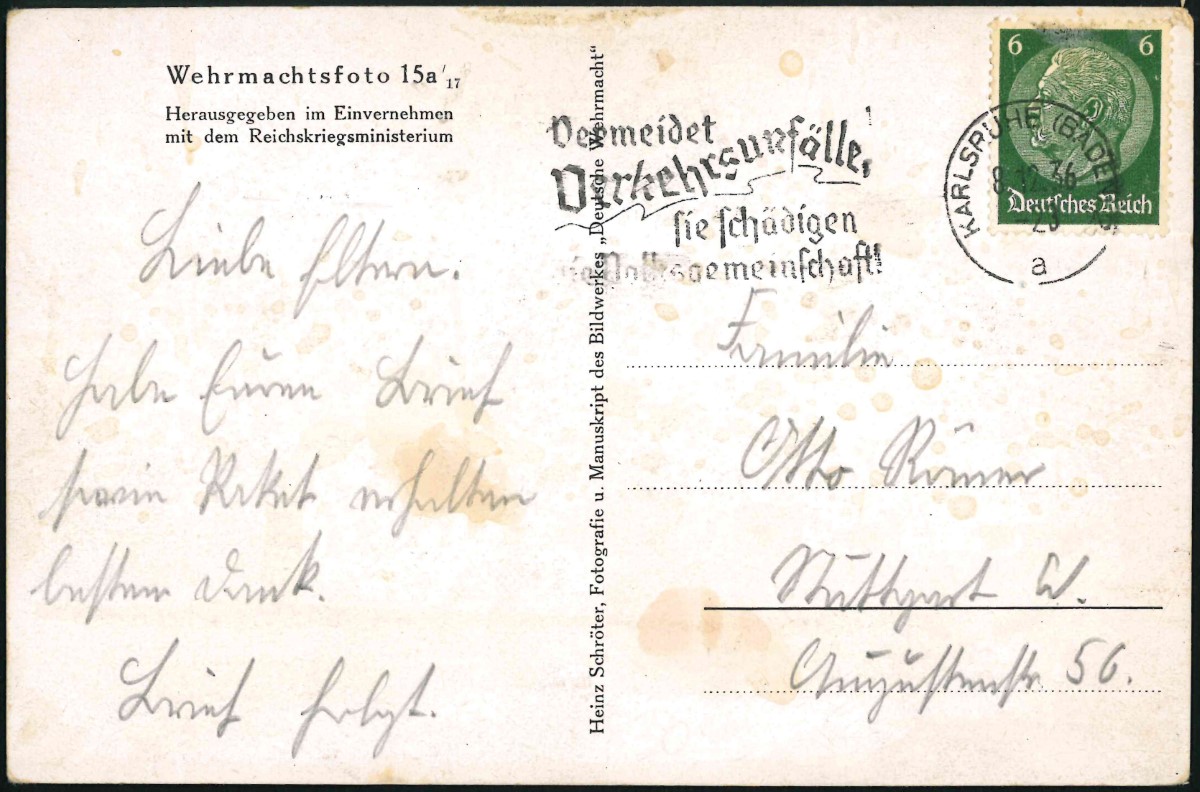 Wehrmachtsfoto 15a/17
Herausgegeben im Einvernehmen
mit dem Reichskriegsministerium
Liebe Eltern.
Habe Euren Brief
sowie Paket erhalten
besten Dank.
Brief folgt.
Heinz Schröter, Fotografie u. Manuskript des Bildwerkes „Deutsche Wehrmacht“
Vermeidet
Verkehrsunfälle,
sie schädigen
die Volksgemeinschaft!
KARLSRUHE (BADEN)
8.12.36
a
6 6
Deutsches Reich
Familie
Otto Römer
Stuttgart W.
Augustenstr 56.